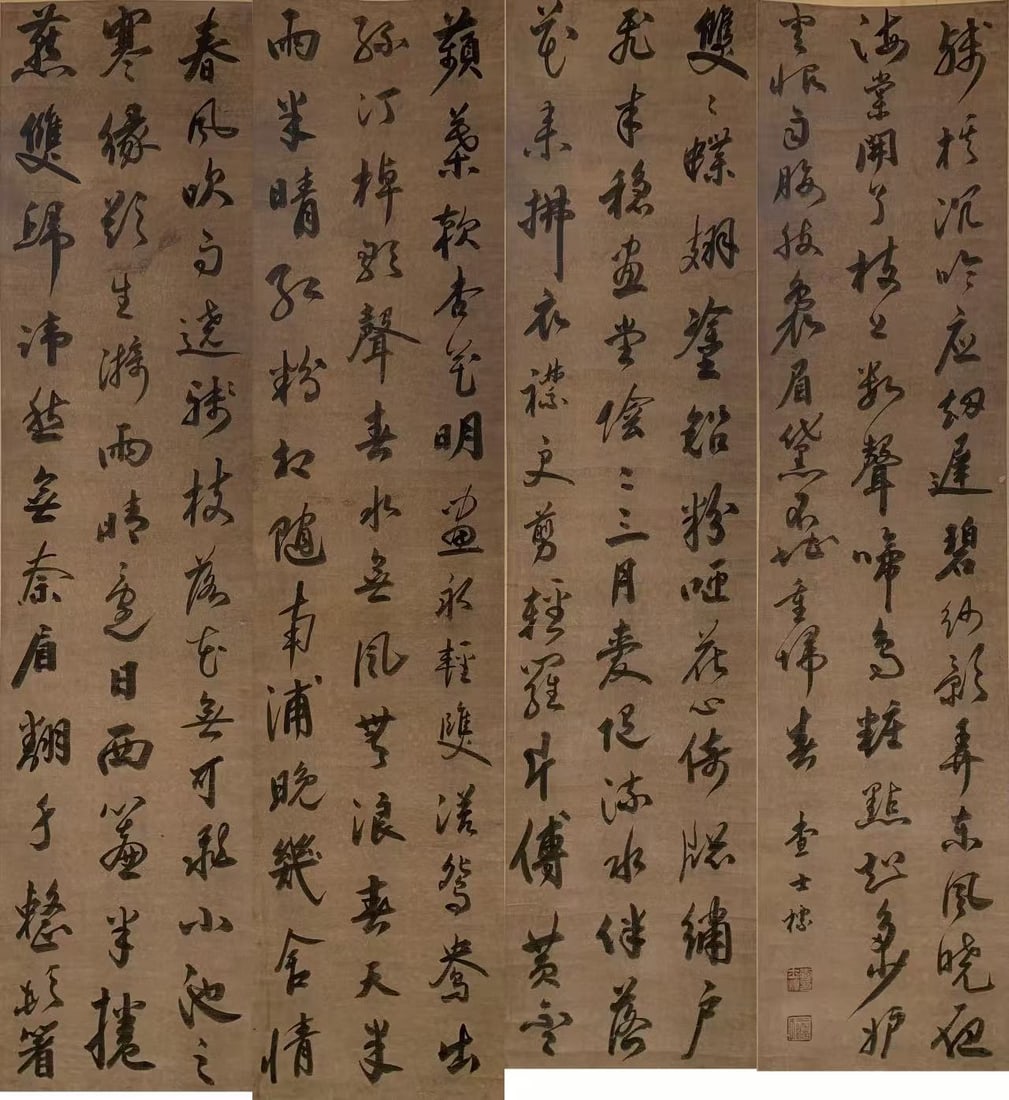 雙雙蝶翅塗鉛粉咂花心綺牕繡戶
飛來穩畫堂陰二三月愛隨流水伴落
花來拂衣襟更剪輕羅片傅黃金
蘋葉軟杏花明畫船輕雙浴鴛鴦出
綠汀棹歌聲春水無風無浪春天半
雨半晴紅粉相隨南浦晚幾含情
春風吹雨遶殘枝落花無可飛小池之
寒綠欲生漪雨晴還日西簾半捲
燕雙歸諱愁無奈眉翻身整頓著
殘棋沉吟应劫遲碧紗影弄東風曉夜
海棠開了枝上數聲啼鳥粧點知多少妒
雲恨雨腰肢裊眉黛不堪重掃春
查士標